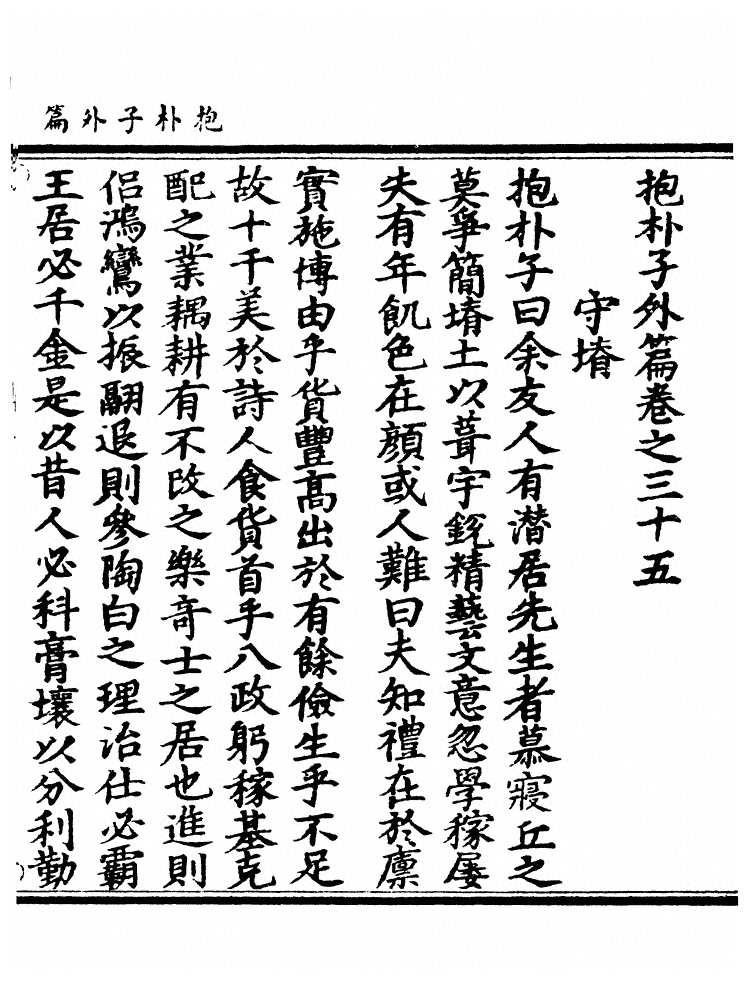 抱朴子外篇
抱朴子外篇卷之三十五
守塉
抱朴子曰余友人有潛居先生者慕寢丘之
莫爭簡塉土以葺宇銳精藝文意忽學稼屢
失有年飢色在顔或人難曰夫知禮在於廩
實施博由乎貨豐高出於有餘儉生乎不足
故十千美於詩人食貨首乎八政躬稼基克
配之業耦耕有不改之樂奇士之居也進則
侣鴻鸞以振翮退則參陶白之理治仕必霸
王居必千金是以昔人必科膏壤以分利勤